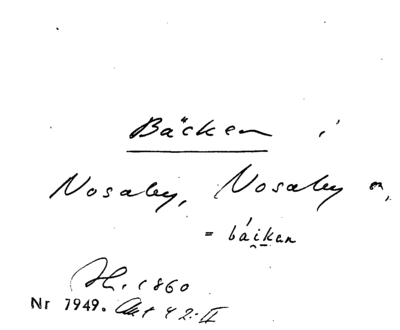 Bäcken i
Nosaby, Nosaby sn,
= bái̯ken
Sk. 1860
Nr 7949. Akt 42:II